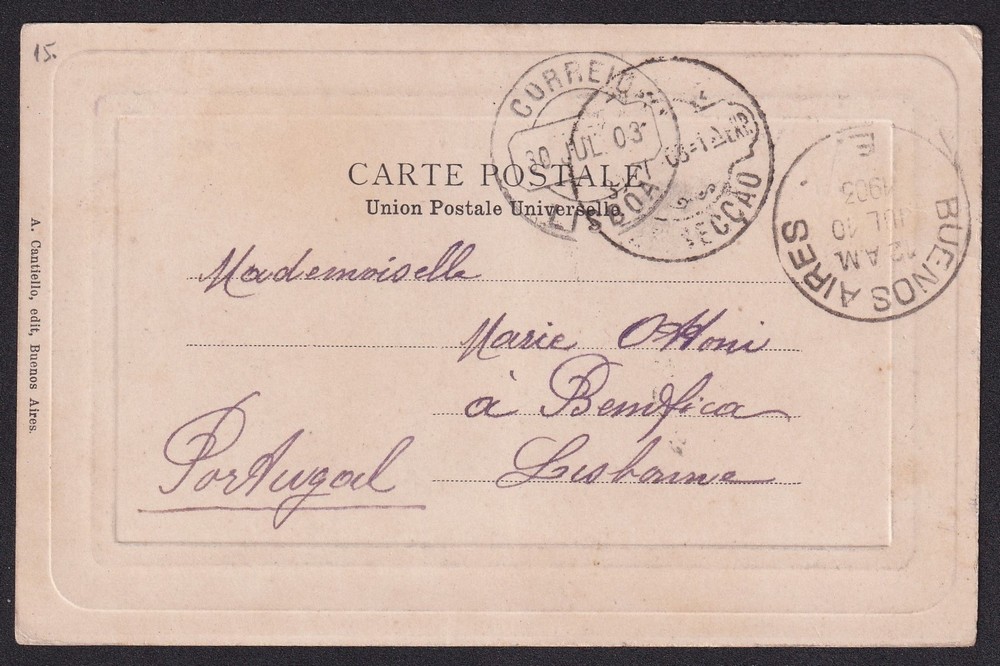 15.
CORREIO
30 JUL. 03
LISBOA
SECÇÃO
BUENOS AIRES
1903
JUL 10
12 A.M.
CARTE POSTALE
Union Postale Universelle.
Mademoiselle
Marie Ottoni
à Bemfica
Lisbonne
Portugal
A. Cantiello, edit, Buenos Aires.